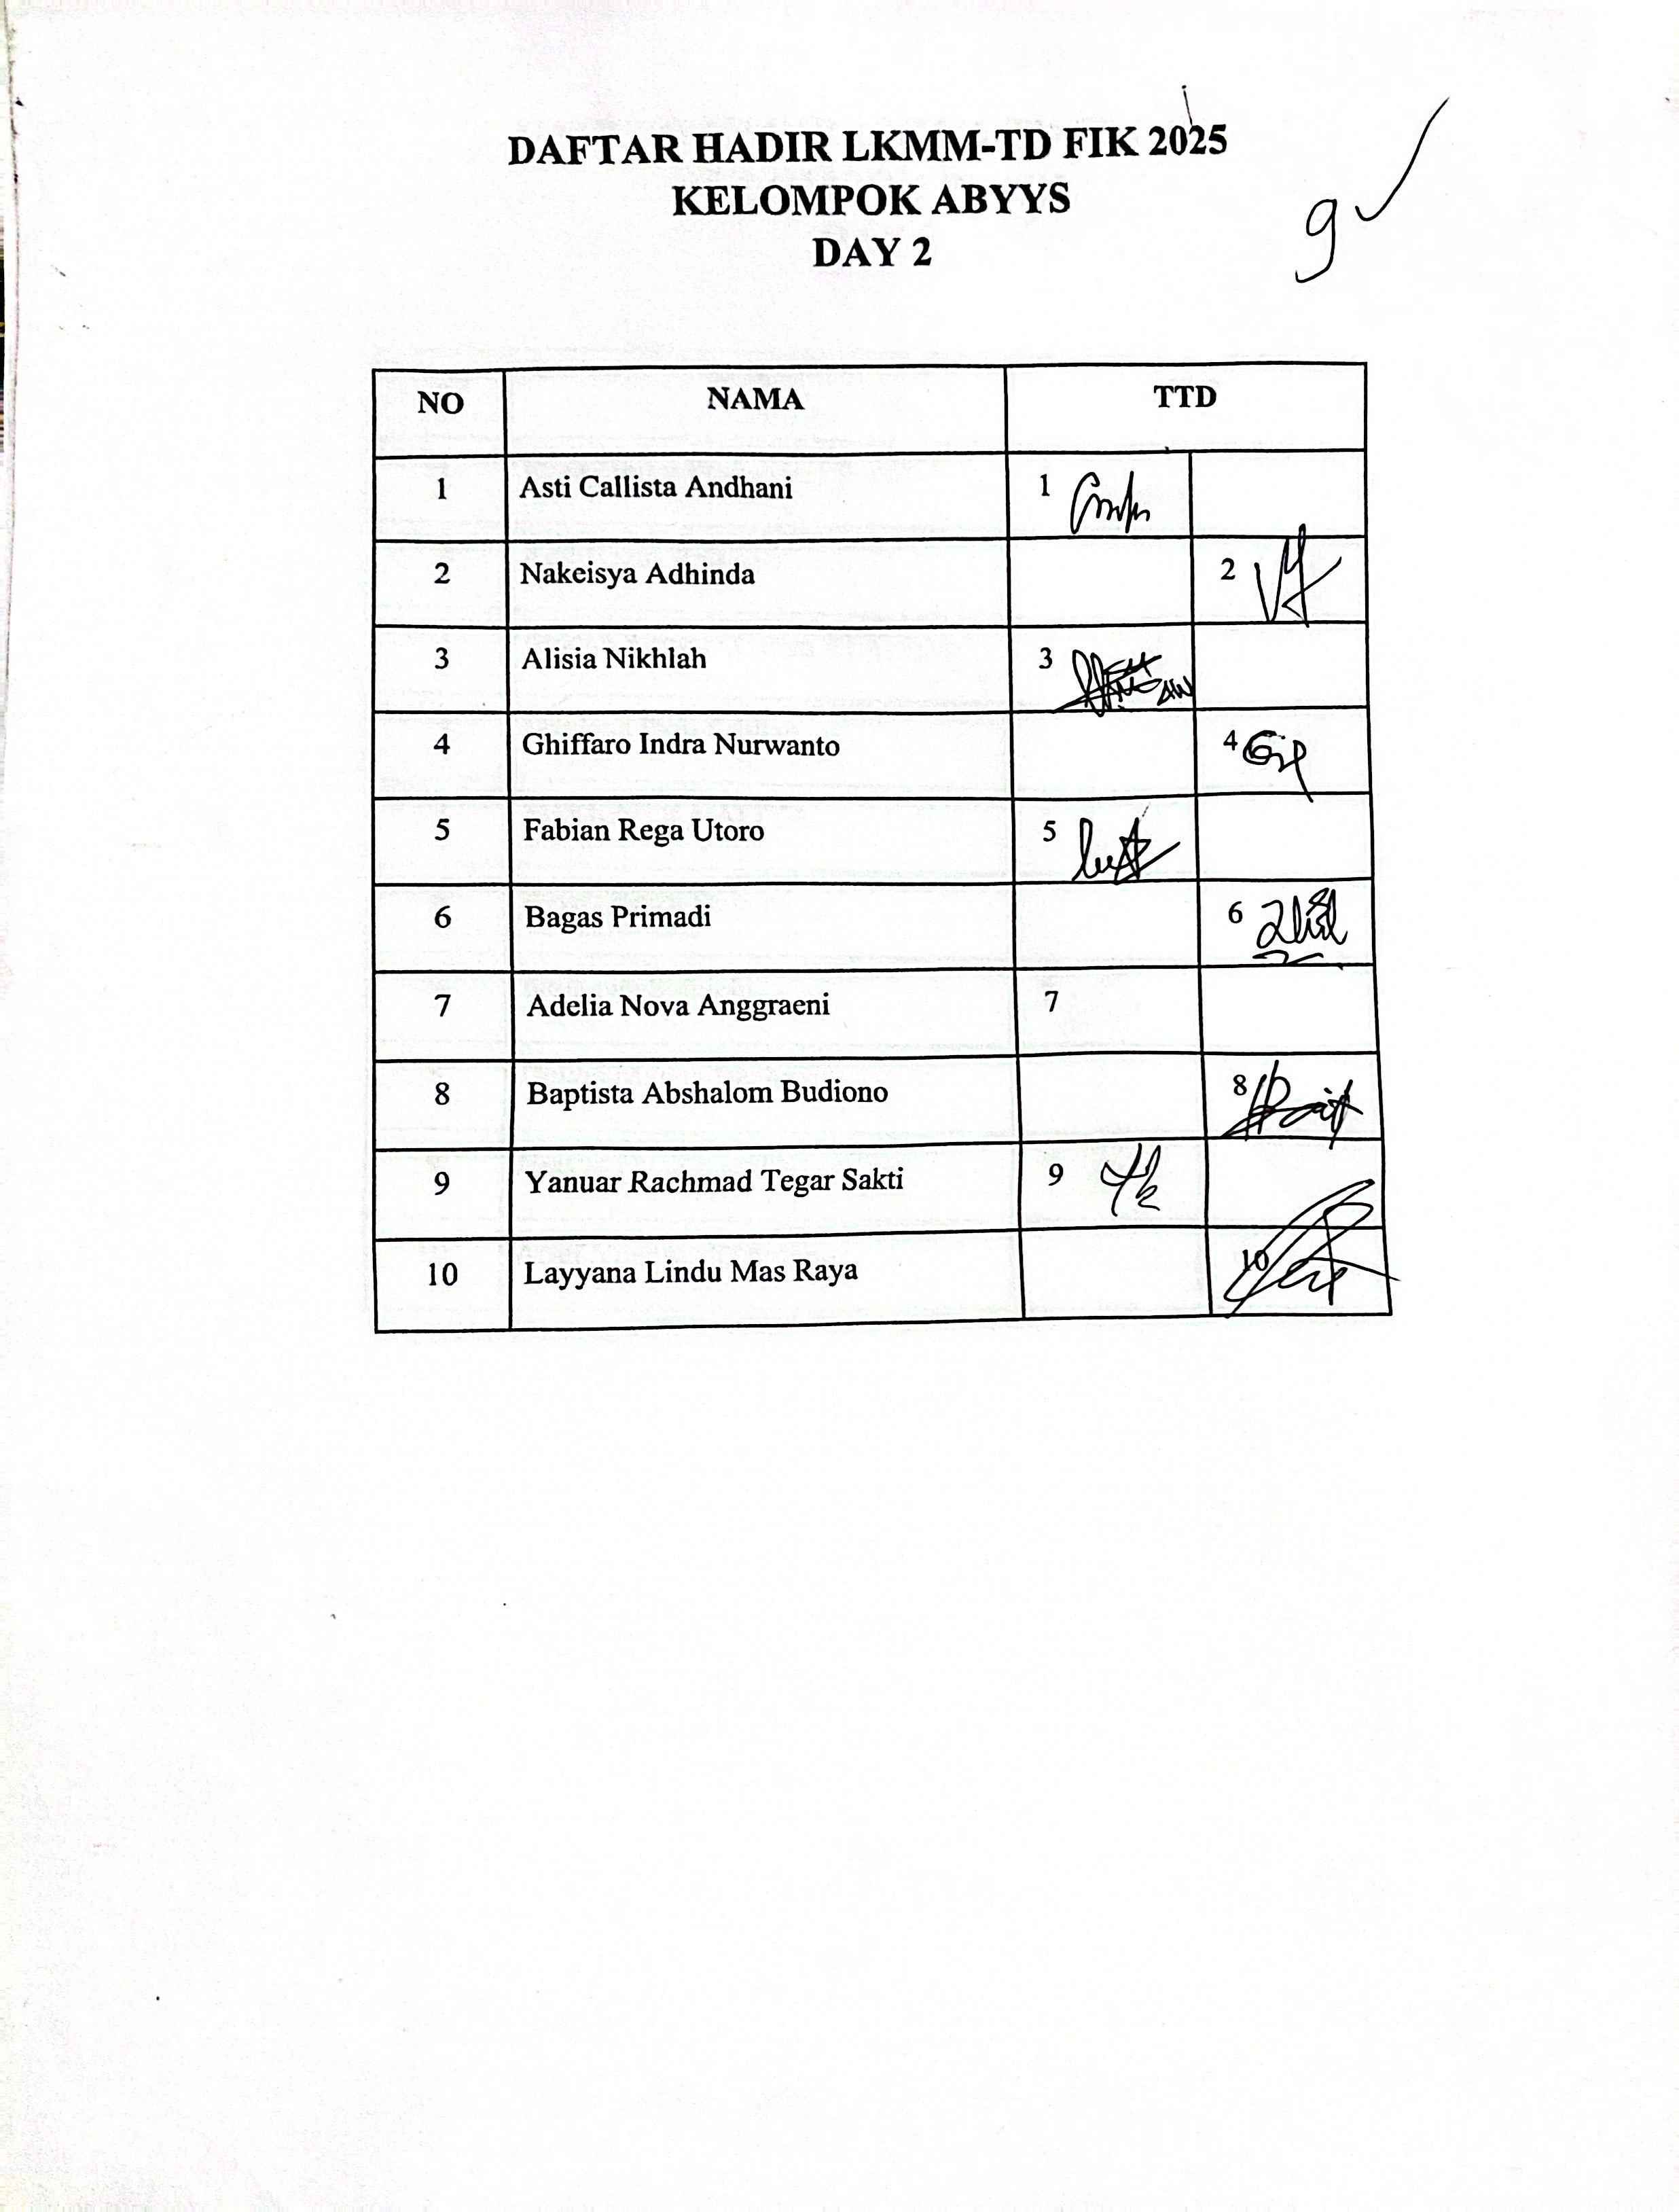 DAFTAR HADIR LKMM-TD FIK 2025
KELOMPOK ABYYS
DAY 2
9
NO NAMA TTD
1 Asti Callista Andhani 1
2 Nakeisya Adhinda 2
3 Alisia Nikhlah 3
4 Ghiffaro Indra Nurwanto 4
5 Fabian Rega Utoro 5
6 Bagas Primadi 6
7 Adelia Nova Anggraeni 7
8 Baptista Abshalom Budiono 8
9 Yanuar Rachmad Tegar Sakti 9
10 Layyana Lindu Mas Raya 10